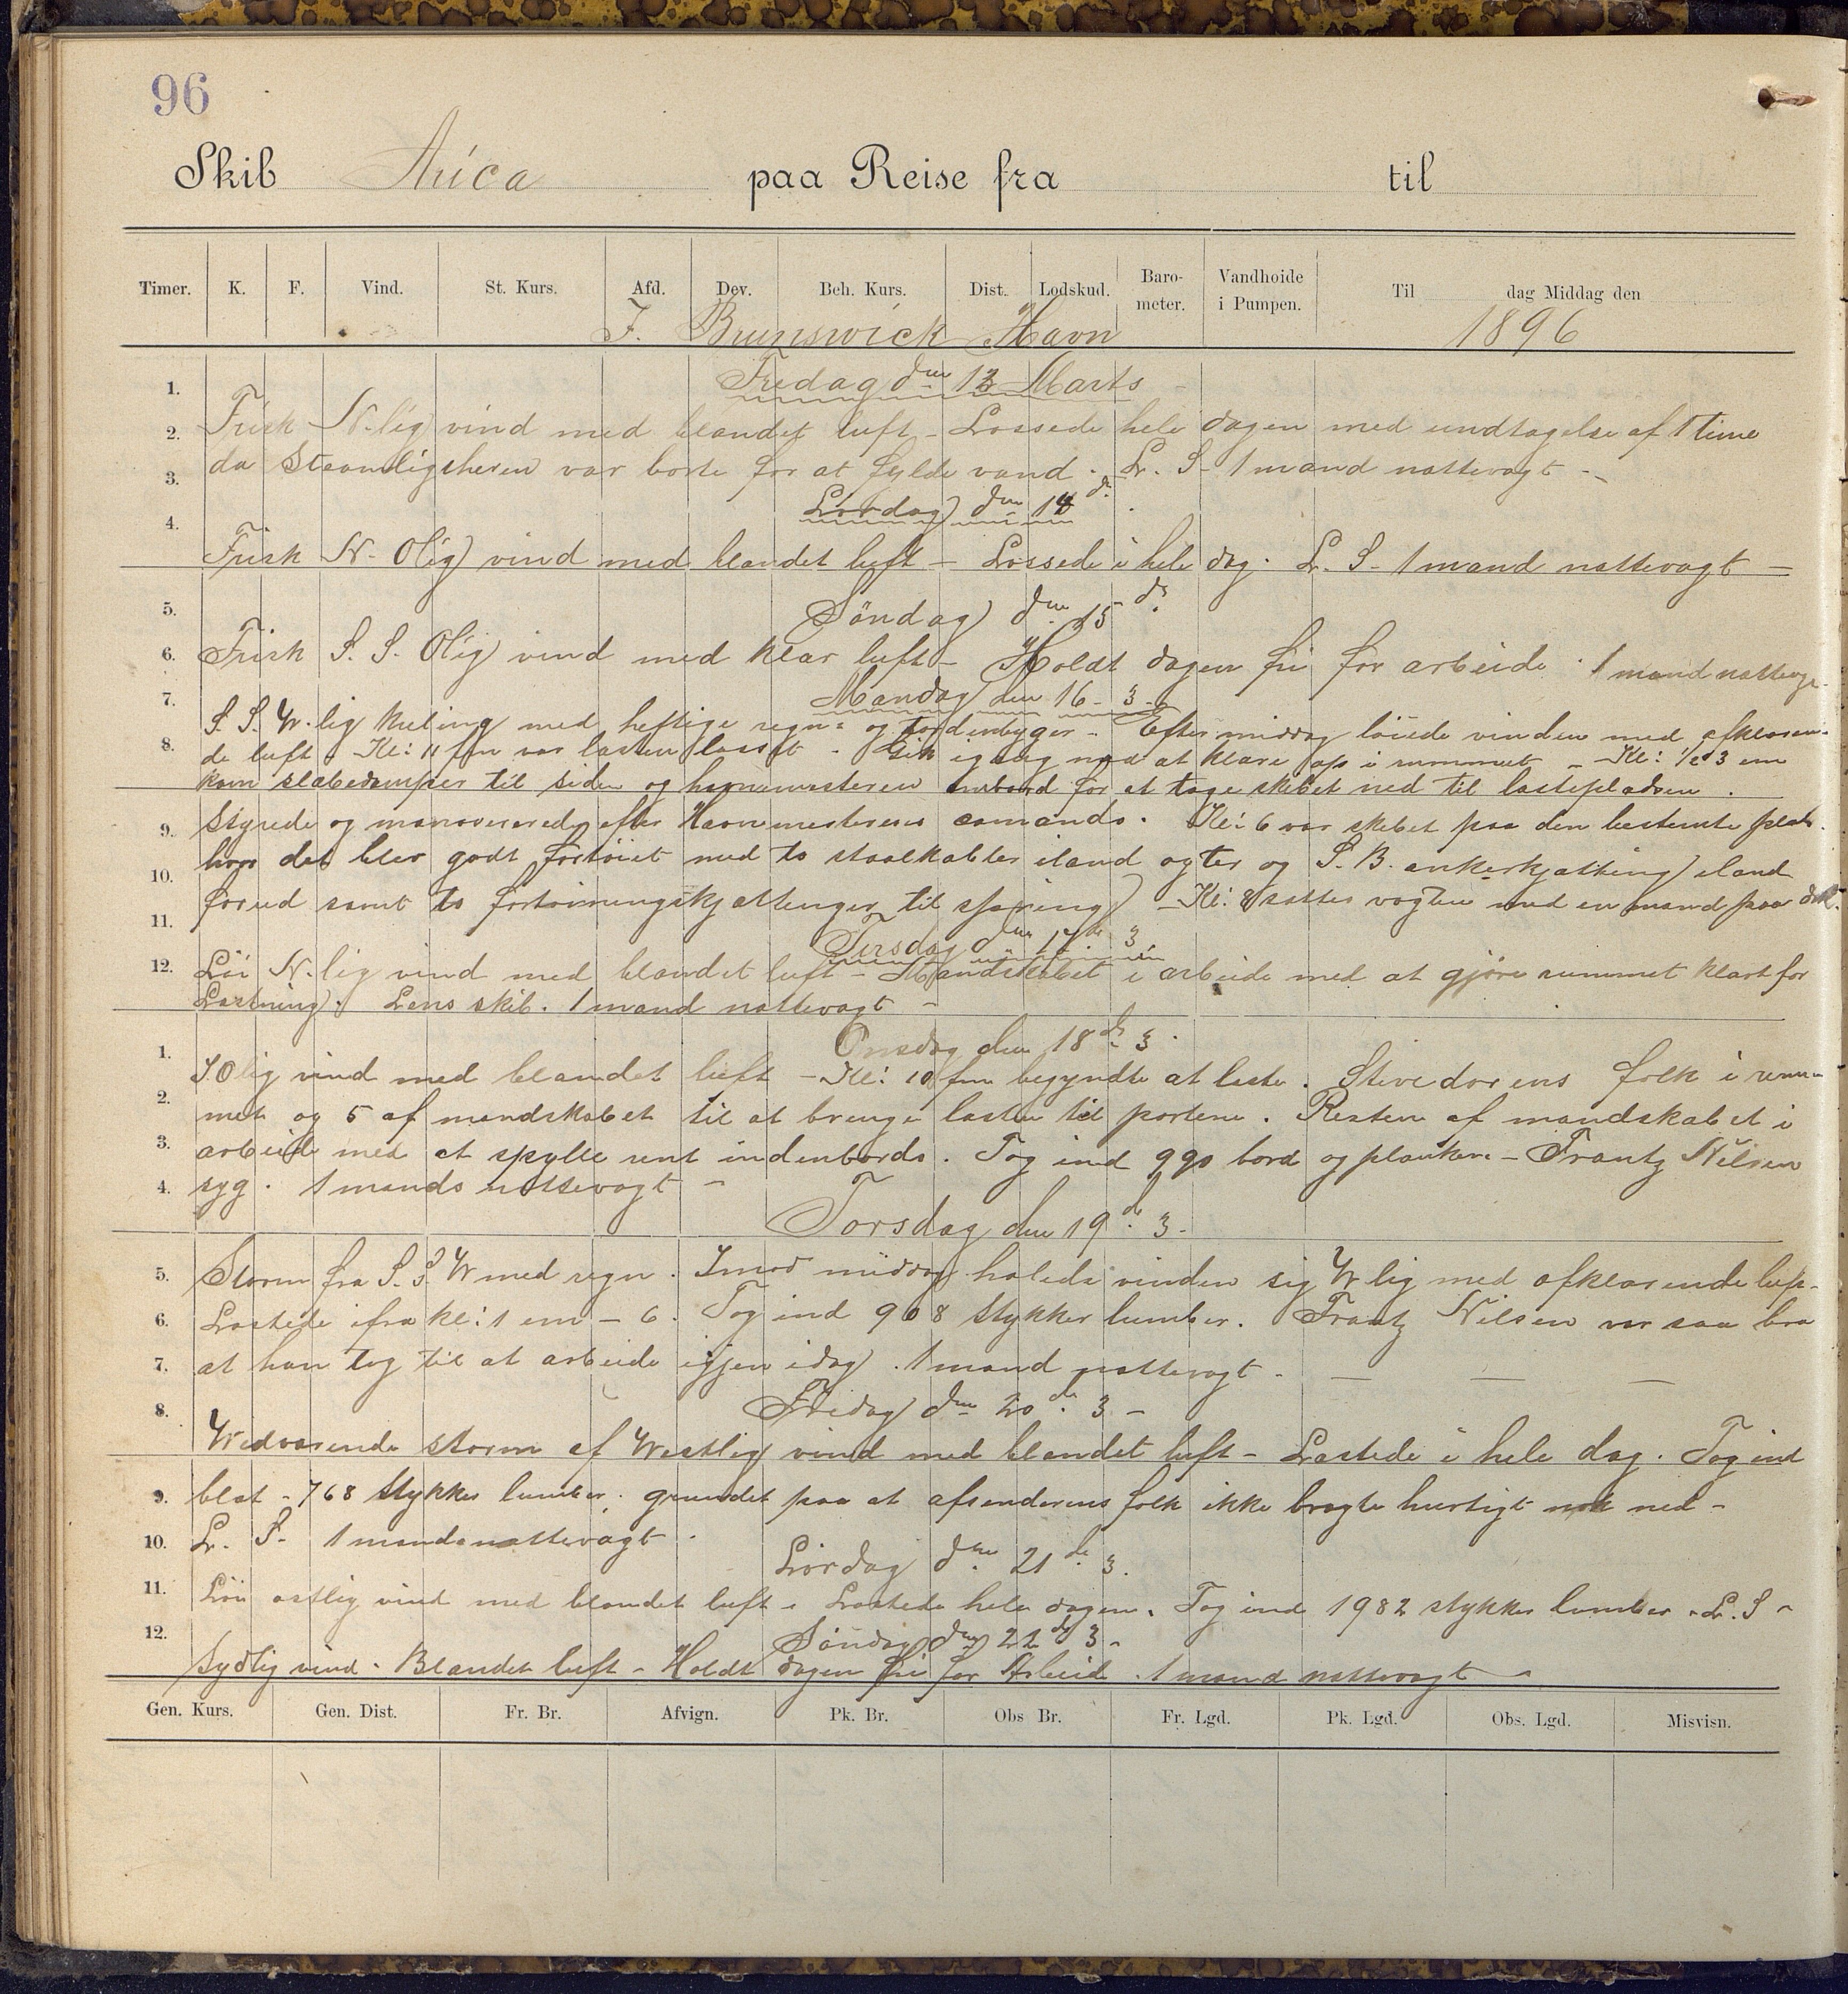 96
Skib Arica paa Reise fra til
Timer. K. F. Vind. St. Kurs. Afd. Dev. Beh. Kurs. Dist. Lodskud. Baro-meter. Vandhoide i Pumpen. Til dag Middag den
I. Brunswick Havn 1896
Fredag den 13 Marts
1.
2. Frisk N-lig vind med blandet luft - Lossede hele dagen med undtagelse af 1 time
3. da Steamligtheren var borte for at fylde vand. L. S - 1 mand nattevagt -
Lørdag den 14 d.
4.
Frisk N-Olig vind med blandet luft - Lossede i hele dag. L. S - 1 mand nattevagt -
5. Söndag den 15 d.
6. Frisk S. S. Olig vind med klar luft - Holdt dagen fri for arbeide. 1 mand nattevagt
7. Mandag den 16 - 3 -
S. S. W. lig kuling med heftige regn= og tordenbyger - Eftermiddag löiede vinden med afklaren-
8. de luft. Kl: 11 fm var lasten losset - Gik igang med at klare op i rummet - Kl: 1/2 3 em
kom slæbedamper til siden og havnemesteren ombord for at tage skibet ned til lastepladsen.
9. Styrede og manoverede efter Havnemesterens comando. Kl: 6 var skibet paa den bestemte plads.
hvor det blev godt fortöiet med to staalkabler iland agter og S. B. ankerkjætting iland
10. forud samt to fortöiningskjættinger til spring - Kl: 8 sattes vagten med en mand paa dæk.
11. Tirsdag den 17de 3
12. Löi N. lig vind med blandet luft - Mandskabet i arbeide med at gjöre rummet klart for
Lastning. Lens skib. 1 mand nattevagt -
Onsdag den 18 de 3
1. S.Olig vind med blandet luft - Kl: 10 fm begyndte at laste. Stivedorens folk i rum-
2. met og 5 af mandskabet til at bringe lasten til portene. Resten af mandskabet i
3. arbeide med at spylle rent indenbords. Tog ind 990 bord og planker - Frantz Nilsen
4. syg. 1 mands nattevagt -
Torsdag den 19 de 3 -
5. Storm fra S. S. W med regn. Imod middag halede vinden sig W lig med afklarende luft -
6. Lastede ifra kl: 1 em - 6. Tog ind 908 stykker lumber. Frantz Nilsen var saa bra
7. at han tog til at arbeide igjen idag. 1 mand nattevagt -
8. Fredag den 20 de 3 -
Wedvarende storm af Westlig vind med blandet luft - Lastede i hele dag. Tog ind
9. blot - 768 stykker lumber. grundet paa at afsenderens folk ikke bragte hurtigt nok ned -
10. L. S - 1 mands nattevagt.
Lördag den 21 de 3.
11. Löi ostlig vind med blandet luft - Lastede hele dagen. Tog ind 1982 stykker lumber - L. S -
12. Söndag den 22 de 3 -
Sydlig vind - Blandet luft - Holdt dagen fri for Arbeide. 1 mand nattevagt -
Gen. Kurs. Gen. Dist. Fr. Br. Afvign. Pk. Br. Obs Br. Fr. Lgd. Pk. Lgd. Obs. Lgd. Misvisn.